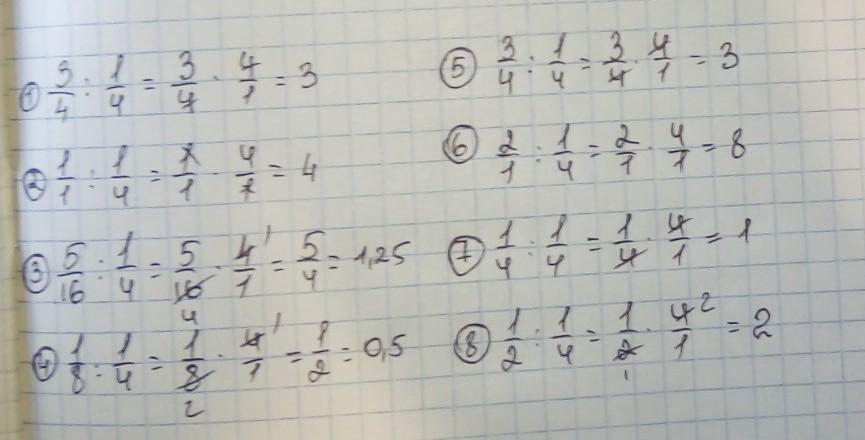 ① 3/4 : 1/4 = 3/4 · 4/1 = 3
② 1/1 : 1/4 = 1/1 · 4/1 = 4
③ 5/16 : 1/4 = 5/16 4 · 4 1/1 = 5/4 = 1,25
④ 1/8 : 1/4 = 1/8 2 · 4 1/1 = 1/2 = 0,5
⑤ 3/4 : 1/4 = 3/4 · 4/1 = 3
⑥ 2/1 : 1/4 = 2/1 · 4/1 = 8
⑦ 1/4 : 1/4 = 1/4 · 4/1 = 1
⑧ 1/2 : 1/4 = 1/2 1 · 4 2/1 = 2